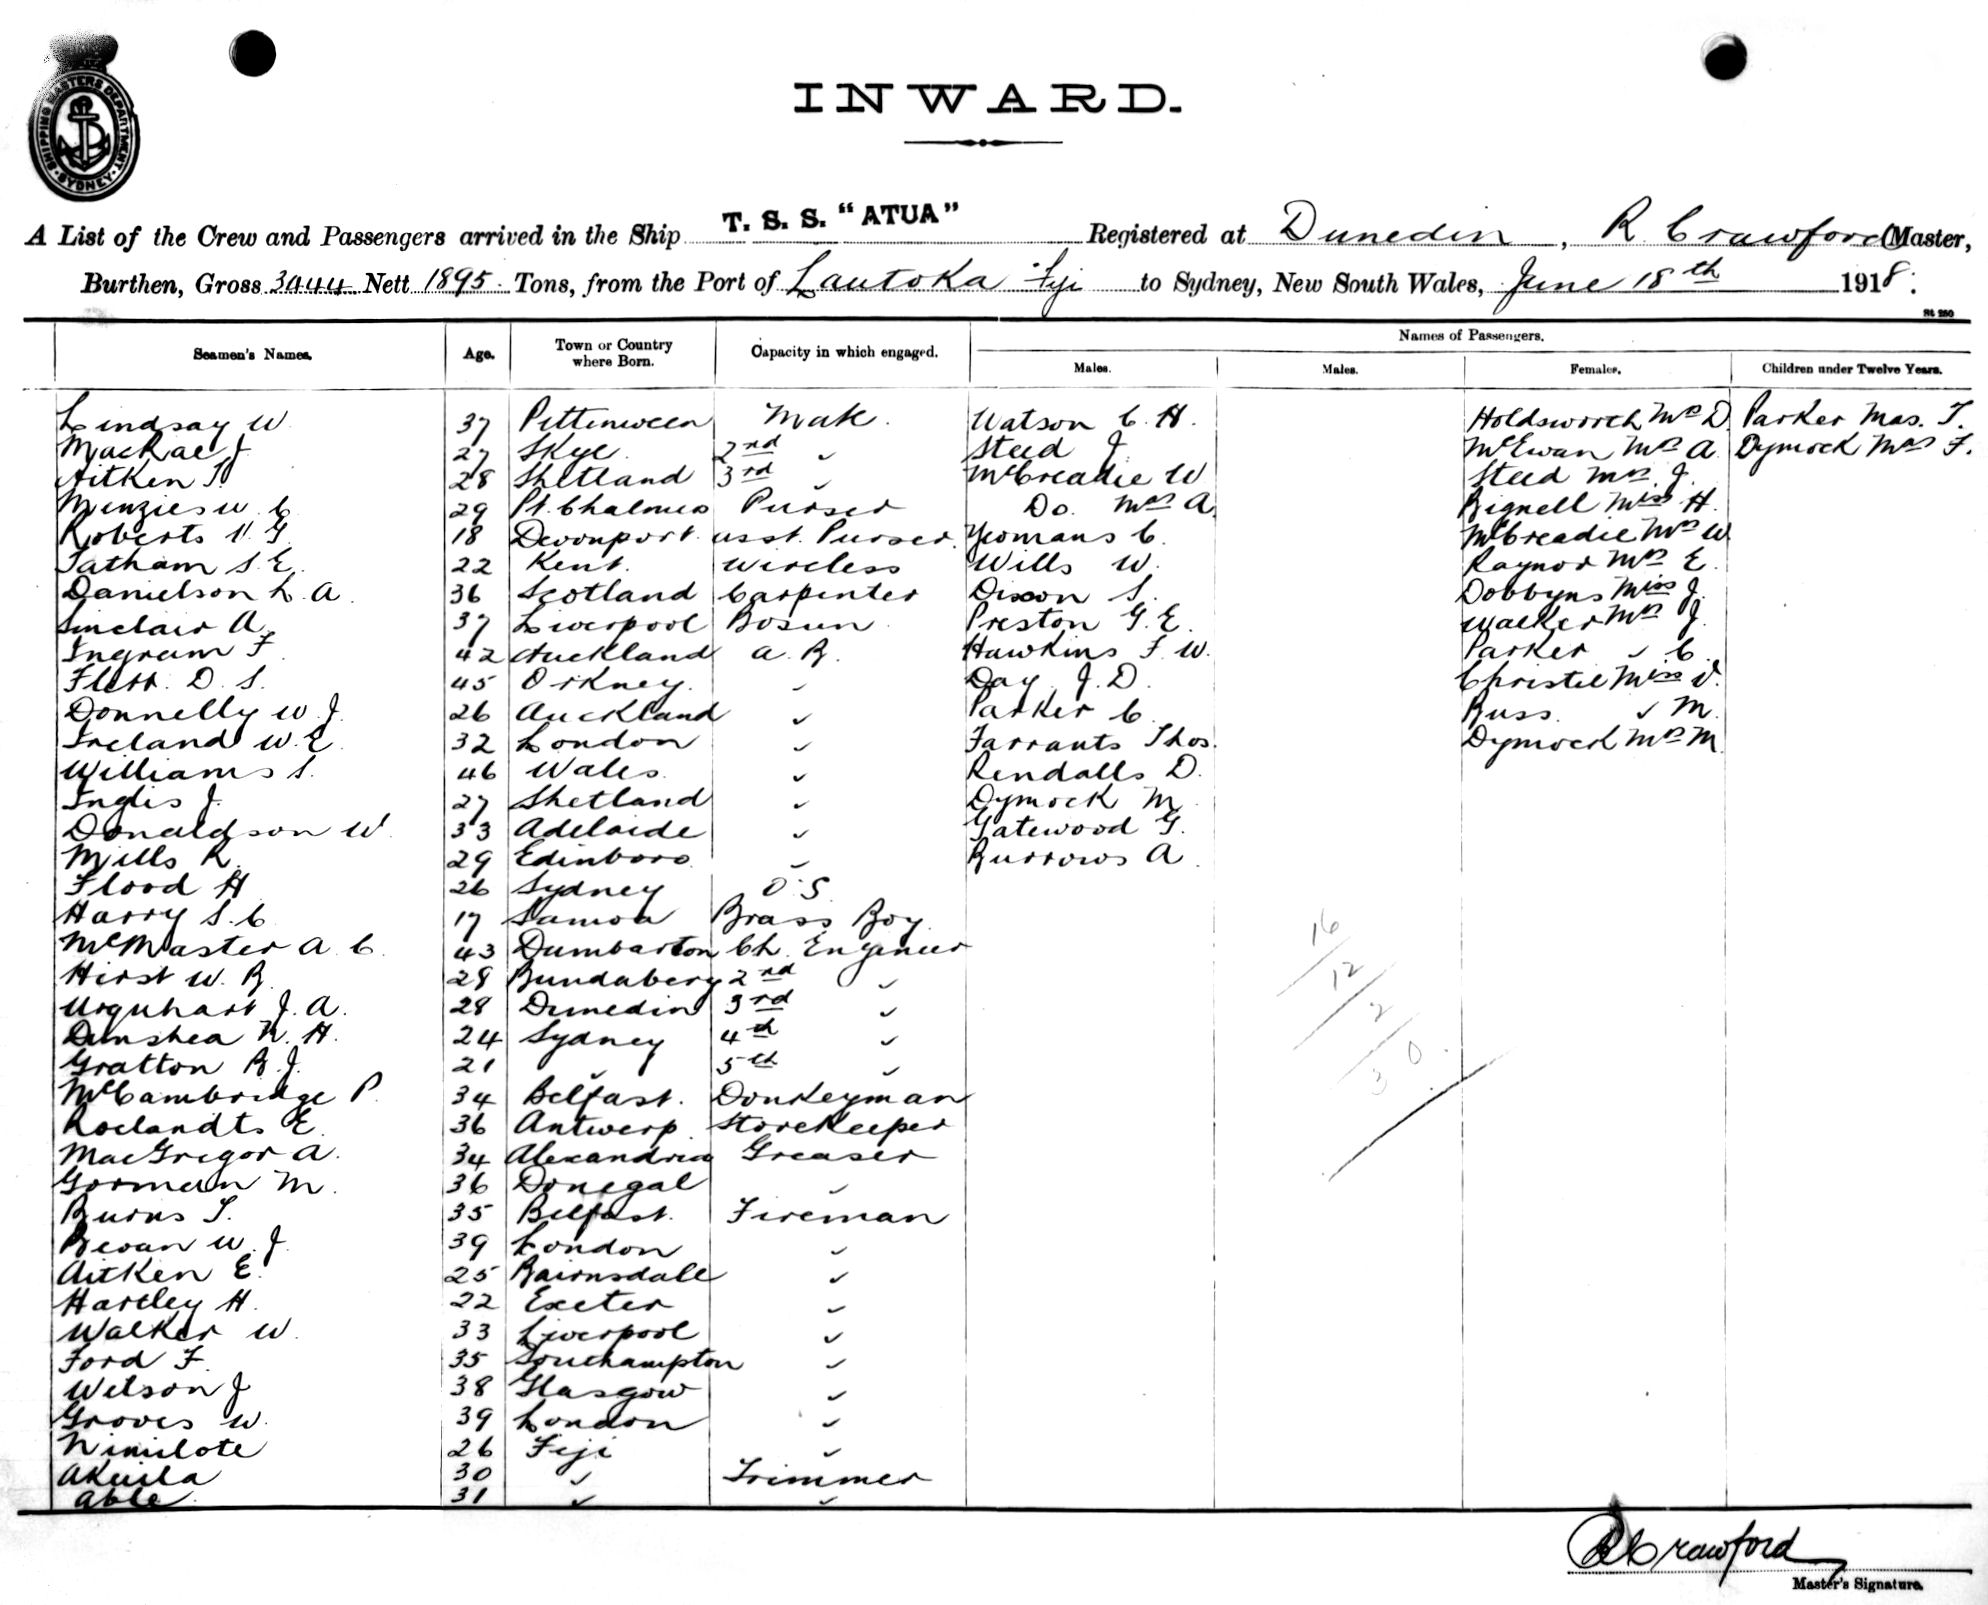 SHIPPING MASTERS DEPARTMENT SYDNEY
INWARD.
A List of the Crew and Passengers arrived in the Ship T. S. S. "ATUA" Registered at Dunedin, R. Crawford Master,
Burthen, Gross 3444 Nett 1895 Tons, from the Port of Lautoka Fiji to Sydney, New South Wales, June 18th 1918.
Names of Passengers.
Seamen's Names. Age. Town or Country where Born. Capacity in which engaged. Males. Males. Females. Children under Twelve Years.
Lindsay W. 37 Pittenween Mate. Watson C. H. Holdsworth Mrs D Parker Mas. T.
MacRae J. 27 Skye. 2nd " Steed J. McEwan Mrs A. Dymock Mas F.
Aitken T. 28 Shetland 3rd " McCreadie W Steed Mrs J.
Menzies W. C. 29 Pt. Chalmers Purser Do. Mas A. Bignell Miss H.
Roberts V. G. 18 Devonport asst. Purser. Yeomans C. McCreadie Mrs W
Tatham S. E. 22 Kent. Wireless Wills W. Raynor Mrs E.
Danielson L. A. 36 Scotland Carpenter Dixon S. Dobbyns Miss J.
Sinclair A. 37 Liverpool Bosun. Preston G. E. Walker Mrs J.
Ingram F. 42 Auckland A. B. Hawkins F. W. Parker " C.
Flett. D. S. 45 Orkney. " Day. J. D. Christie Miss V.
Donnelly W. J. 26 Auckland " Parker C. Buss. " M.
Ireland W. E. 32 London " Farrants Thos. Dymock Mrs M.
Williams S. 46 Wales. " Rendalls D.
Inglis J. 27 Shetland " Dymock M.
Donaldson W. 33 Adelaide " Gatewood G.
Mills R. 29 Edinboro " Burrows A.
Flood H 26 Sydney O. S.
Harry S. C. 17 Samoa Brass Boy.
McMaster A. C. 43 Dumbarton Ch. Engineer
Hirst W. B. 28 Bundaberg 2nd "
Urquhart J. A. 28 Dunedin 3rd "
Dunshea N. H. 24 Sydney 4th "
Gratton B. J. 21 " 5th "
McCambridge P. 34 Belfast. Donkeyman
Roelandts E. 36 Antwerp. Storekeeper
MacGregor A. 34 Alexandria Greaser
Gorman M. 36 Donegal "
Burns T. 35 Belfast. Fireman
Bevan W. J. 39 London "
Aitken E. 25 Bairnsdale "
Hartley H. 22 Exeter "
Walker W. 33 Liverpool "
Ford F. 35 Southampton "
Wilson J 38 Glasgow "
Groves W. 39 London "
Nimilote 26 Fiji "
Akuila 30 " Trimmer
Able 31 " "
16
12
2
30
R Crawford
Master's Signature.